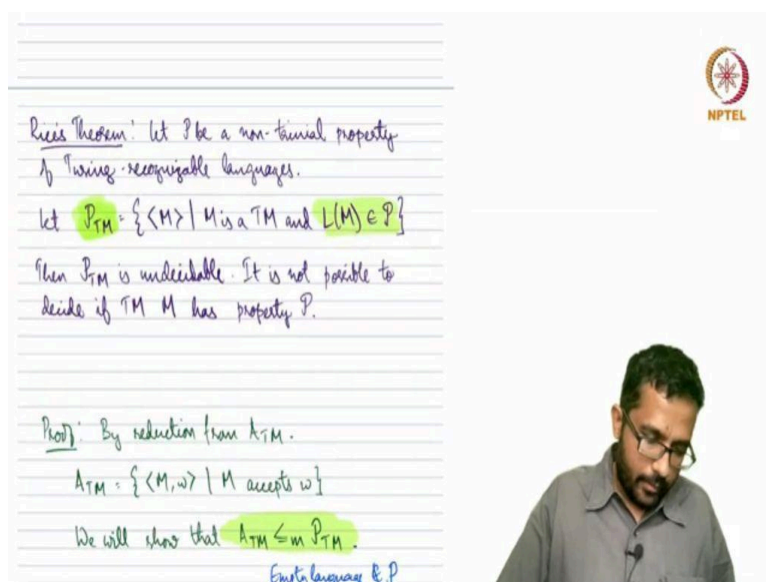 Rice's Theorem: Let P be a non-trivial property
of Turing-recognizable languages.
Let P_TM = {<M> | M is a TM and L(M) ∈ P}
Then P_TM is undecidable. It is not possible to
decide if TM M has property P.
Proof: By reduction from A_TM.
A_TM = {<M, w> | M accepts w}
We will show that A_TM ≤m P_TM.
Empty language ∉ P
NPTEL